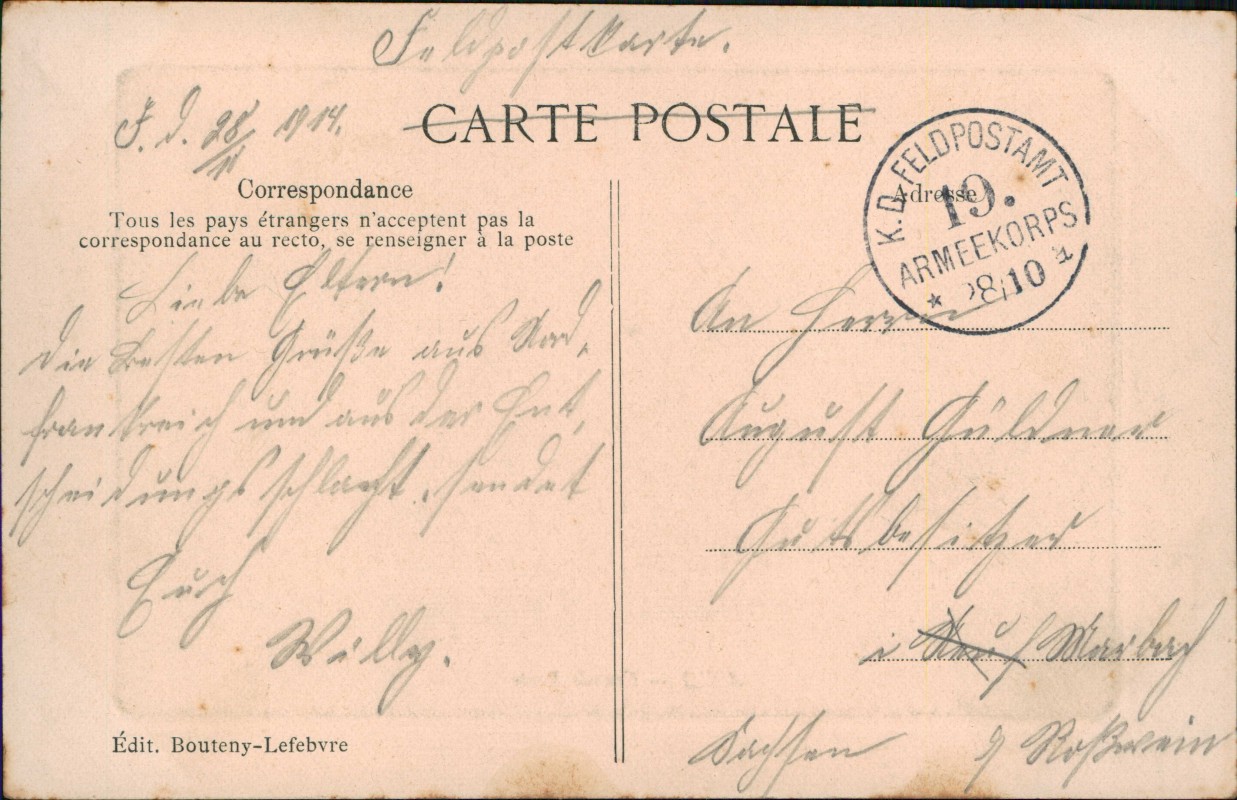 Feldpostkarte.
F. d. 28/11 1914.
CARTE POSTALE
Correspondance
Tous les pays étrangers n'acceptent pas la
correspondance au recto, se renseigner à la poste
Liebe Eltern!
Die besten Grüße aus Nord,
frankreich und aus der Ent,
scheidungsschlacht sendet
Euch
Willy.
Édit. Bouteny-Lefebvre
K. D. FELDPOSTAMT
19.
ARMEEKORPS
Adresse
An Herrn
August Güldner
Gutsbesitzer
i Marbach
Sachsen Roßwein